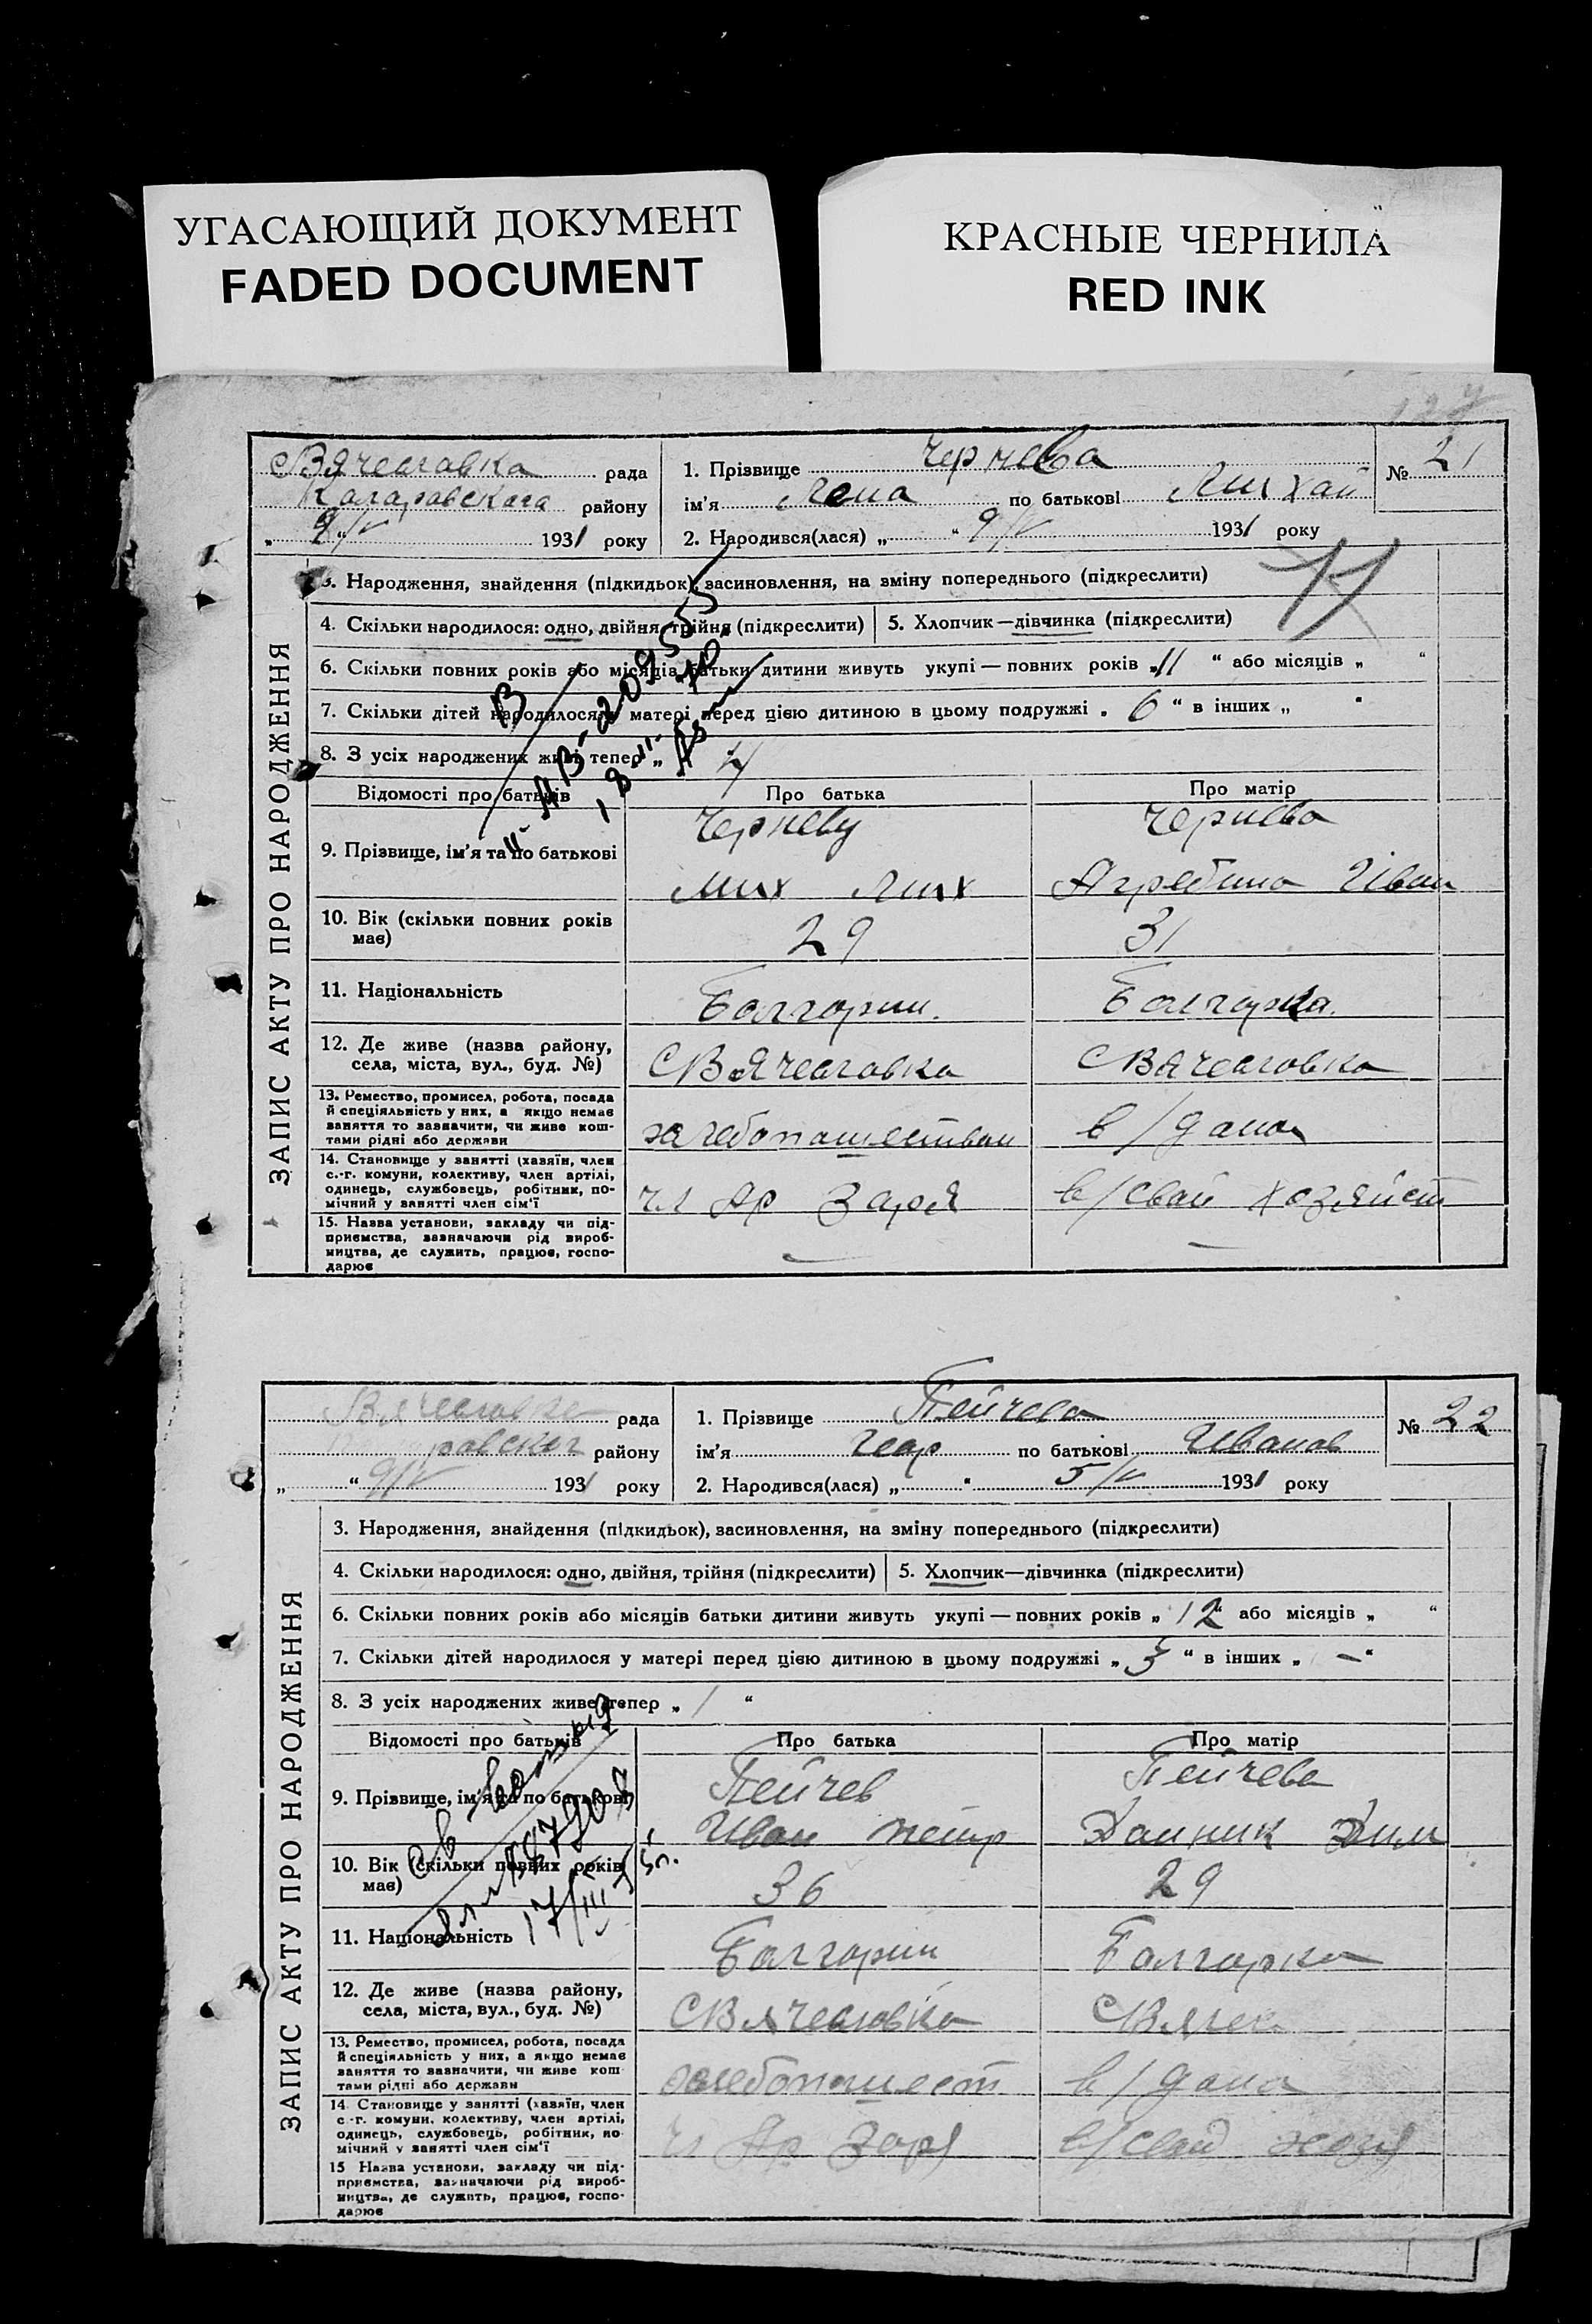 УГАСАЮЩИЙ ДОКУМЕНТ
FADED DOCUMENT
КРАСНЫЕ ЧЕРНИЛА
RED INK
ЗАПИС АКТУ ПРО НАРОДЖЕННЯ
рада
району
9/V 1931 року
1. Прізвище Чернева
№ 21
ім'я Лена по батькові Михай
2. Народився(лася) „ “ 9/V 1931 року
3. Народження, знайдення (підкидьок), засиновлення, на зміну попереднього (підкреслити)
4. Скільки народилося: одно, двійня, трійня (підкреслити) 5. Хлопчик—дівчинка (підкреслити)
6. Скільки повних років або місяців батьки дитини живуть укупі — повних років „11 “ або місяців „ “
7. Скільки дітей народилося у матері перед цією дитиною в цьому подружжі „ 6 “ в інших „ “
8. З усіх народжених живе тепер „ 4
Відомості про батьків Про батька Про матір
9. Прізвище, ім'я та по батькові
Чернева
Мих Мих
Иван
10. Вік (скільки повних років має) 29 31
11. Національність Болгарин. Болгарка.
12. Де живе (назва району, села, міста, вул., буд. №)
13. Ремество, промисел, робота, посада
й спеціяльність у них, а якщо немає
заняття то зазначити, чи живе кош-
тами рідні або держави
в/дома
14. Становище у занятті (хазяїн, член
с.-г. комуни, колективу, член артілі,
одинець, службовець, робітник, по-
мічний у занятті член сім'ї
чл Ар Заря в/свой хозяйст
15. Назва установи, закладу чи під-
приємства, зазначаючи рід вироб-
ництва, де служить, працює, госпо-
дарює
ЗАПИС АКТУ ПРО НАРОДЖЕННЯ
рада
району
„ “ 9/V 1931 року
1. Прізвище Пейчева
№ 22
ім'я по батькові Иванов
2. Народився(лася) „ “ 5/V 1931 року
3. Народження, знайдення (підкидьок), засиновлення, на зміну попереднього (підкреслити)
4. Скільки народилося: одно, двійня, трійня (підкреслити) 5. Хлопчик—дівчинка (підкреслити)
6. Скільки повних років або місяців батьки дитини живуть укупі — повних років „ 12 “ або місяців „ “
7. Скільки дітей народилося у матері перед цією дитиною в цьому подружжі „ 3 “ в інших „ — “
8. З усіх народжених живе тепер „ 1 “
Відомості про батьків Про батька Про матір
9. Прізвище, ім'я та по батькові
Пейчев Пейчева
Иван Петр
10. Вік (скільки повних років має) 36 29
11. Національність Болгарин Болгарка
12. Де живе (назва району, села, міста, вул., буд. №)
13. Ремество, промисел, робота, посада
й спеціяльність у них, а якщо немає
заняття то зазначити, чи живе кош-
тами рідні або держави
в/дома
14. Становище у занятті (хазяїн, член
с.-г. комуни, колективу, член артілі,
одинець, службовець, робітник, по-
мічний у занятті член сім'ї
чл Ар Заря
15 Назва установи, закладу чи під-
приємства, зазначаючи рід вироб-
ництва, де служить, працює, госпо-
дарює